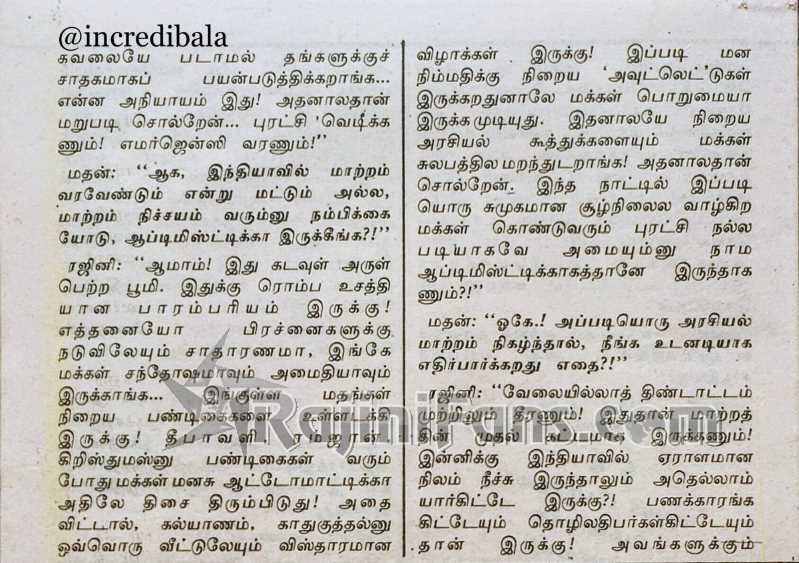 @incredibala
கவலையே படாமல் தங்களுக்குச்
சாதகமாகப் பயன்படுத்திக்கறாங்க...
என்ன அநியாயம் இது! அதனாலதான்
மறுபடி சொல்றேன்... புரட்சி 'வெடிக்க
ணும்! எமர்ஜென்ஸி வரணும்!''
மதன்: ‘‘ஆக, இந்தியாவில் மாற்றம்
வரவேண்டும் என்று மட்டும் அல்ல,
மாற்றம் நிச்சயம் வரும்னு நம்பிக்கை
யோடு, ஆப்டிமிஸ்ட்டிக்கா இருக்கீங்க?!’’
ரஜினி: ‘‘ஆமாம்! இது கடவுள் அருள்
பெற்ற பூமி. இதுக்கு ரொம்ப உசத்தி
யான பாரம்பரியம் இருக்கு!
எத்தனையோ பிரச்னைகளுக்கு
நடுவிலேயும் சாதாரணமா, இங்கே
மக்கள் சந்தோஷமாவும் அமைதியாவும்
இருக்காங்க... இங்குள்ள மதங்கள்
நிறைய பண்டிகைகளை உள்ளடக்கி
இருக்கு! தீபாவளி, ரம்ஜான்,
கிறிஸ்துமஸ்னு பண்டிகைகள் வரும்
போது மக்கள் மனசு ஆட்டோமாட்டிக்கா
அதிலே திசை திரும்பிடுது! அதை
விட்டால், கல்யாணம், காதுகுத்தல்னு
ஒவ்வொரு வீட்டுலேயும் விஸ்தாரமான
விழாக்கள் இருக்கு! இப்படி மன
நிம்மதிக்கு நிறைய ‘அவுட்லெட்’டுகள்
இருக்கறதுனாலே மக்கள் பொறுமையா
இருக்கமுடியுது. இதனாலயே நிறைய
அரசியல் கூத்துக்களையும் மக்கள்
சுலபத்தில மறந்துடறாங்க! அதனாலதான்
சொல்றேன். இந்த நாட்டில் இப்படி
யொரு சுமுகமான சூழ்நிலைல வாழ்கிற
மக்கள் கொண்டுவரும் புரட்சி நல்ல
படியாகவே அமையும்னு நாம
ஆப்டிமிஸ்ட்டிக்காகத்தானே இருந்தாக
ணும்?!’’
மதன்: ‘‘ஓகே.! அப்படியொரு அரசியல்
மாற்றம் நிகழ்ந்தால், நீங்க உடனடியாக
எதிர்பார்க்கறது எதை?!’’
ரஜினி: ‘‘வேலையில்லாத் திண்டாட்டம்
முற்றிலும் தீரணும்! இதுதான் மாற்றத்
தின் முதல் கட்டமாக இருக்கணும்!
இன்னிக்கு இந்தியாவில் ஏராளமான
நிலம் நீச்சு இருந்தாலும் அதெல்லாம்
யார்கிட்டே இருக்கு?! பணக்காரங்க
கிட்டேயும் தொழிலதிபர்கள்கிட்டேயும்
தான் இருக்கு! அவங்களுக்கும்
RajiniFans.com